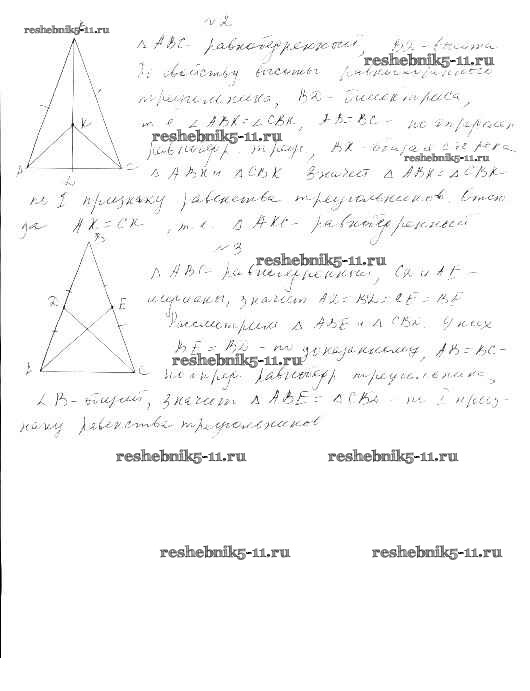 №2
reshebnik5-11.ru
△ABC - равнобедренный, BD - высота.
reshebnik5-11.ru
По свойству высоты равнобедренного
треугольника, BD - биссектриса,
т.е. ∠ABK = ∠CBK, AB = BC - по определ.
reshebnik5-11.ru
равнобедр. треуг., BK - общая сторона
reshebnik5-11.ru
△ABK и △CBK. Значит △ABK = △CBK -
по I признаку равенства треугольников. Отсю-
да AK = CK, т.е. △AKC - равнобедренный
K
A
D
C
№3
B
reshebnik5-11.ru
△ABC - равнобедренный, CD и AE -
медианы, значит AD = BD = CE = BE
Рассмотрим △ABE и △CBD. У них
BE = BD - по доказанному, AB = BC -
reshebnik5-11.ru
по опред. равнобедр. треугольника,
∠B - общий, значит △ABE = △CBD - по I приз-
наку равенства треугольников
D
E
A
C
reshebnik5-11.ru reshebnik5-11.ru
reshebnik5-11.ru reshebnik5-11.ru